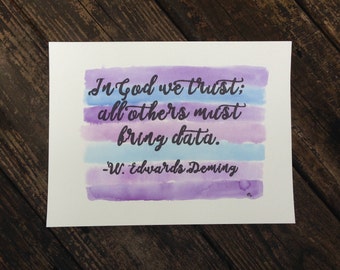 In God we trust;
all others must
bring data.
-W. Edwards Deming